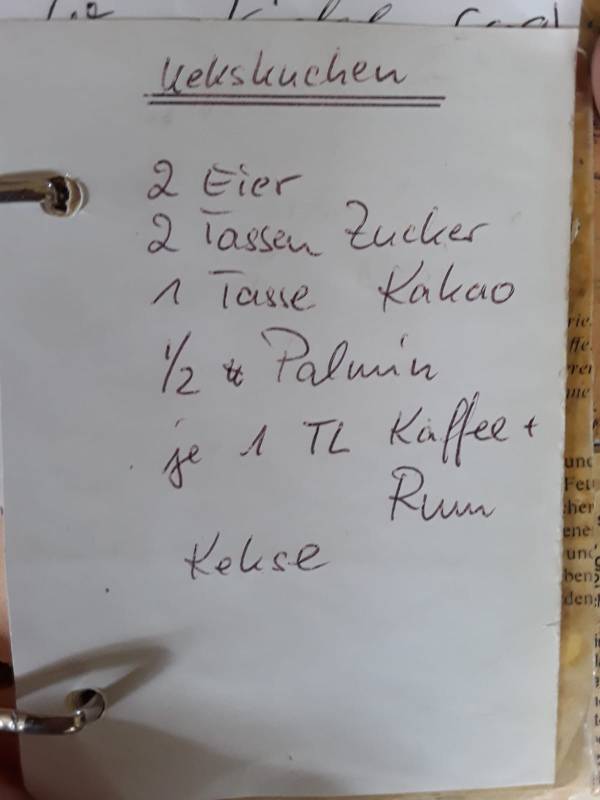 Kekskuchen
2 Eier
2 Tassen Zucker
1 Tasse Kakao
1/2 Palmin
je 1 TL Kaffee +
Rum
Kekse
rie.
ffe.
und
Fet
cher
ene
und
ben
den